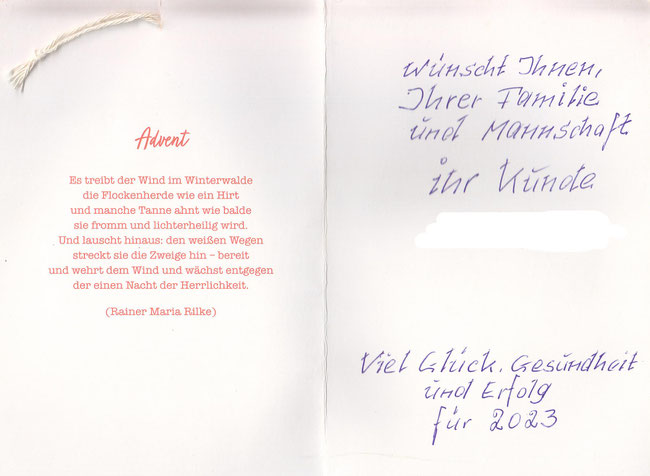 Advent
Es treibt der Wind im Winterwalde
die Flockenherde wie ein Hirt
und manche Tanne ahnt wie balde
sie fromm und lichterheilig wird.
Und lauscht hinaus: den weißen Wegen
streckt sie die Zweige hin – bereit
und wehrt dem Wind und wächst entgegen
der einen Nacht der Herrlichkeit.
(Rainer Maria Rilke)
wünscht Ihnen,
Ihrer Familie
und Mannschaft
ihr Kunde
Viel Glück. Gesundheit
und Erfolg
für 2023